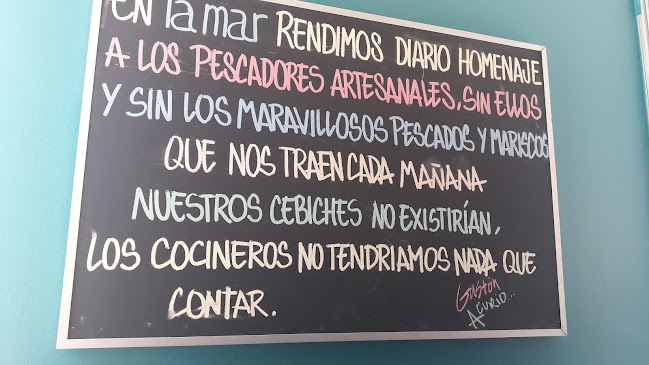 EN la mar RENDIMOS DIARIO HOMENAJE
A LOS PESCADORES ARTESANALES, SIN ELLOS
Y SIN LOS MARAVILLOSOS PESCADOS Y MARISCOS
QUE NOS TRAEN CADA MAÑANA
NUESTROS CEBICHES NO EXISTIRÍAN,
LOS COCINEROS NO TENDRIAMOS NADA QUE
CONTAR.
Gastón
ACURIO...